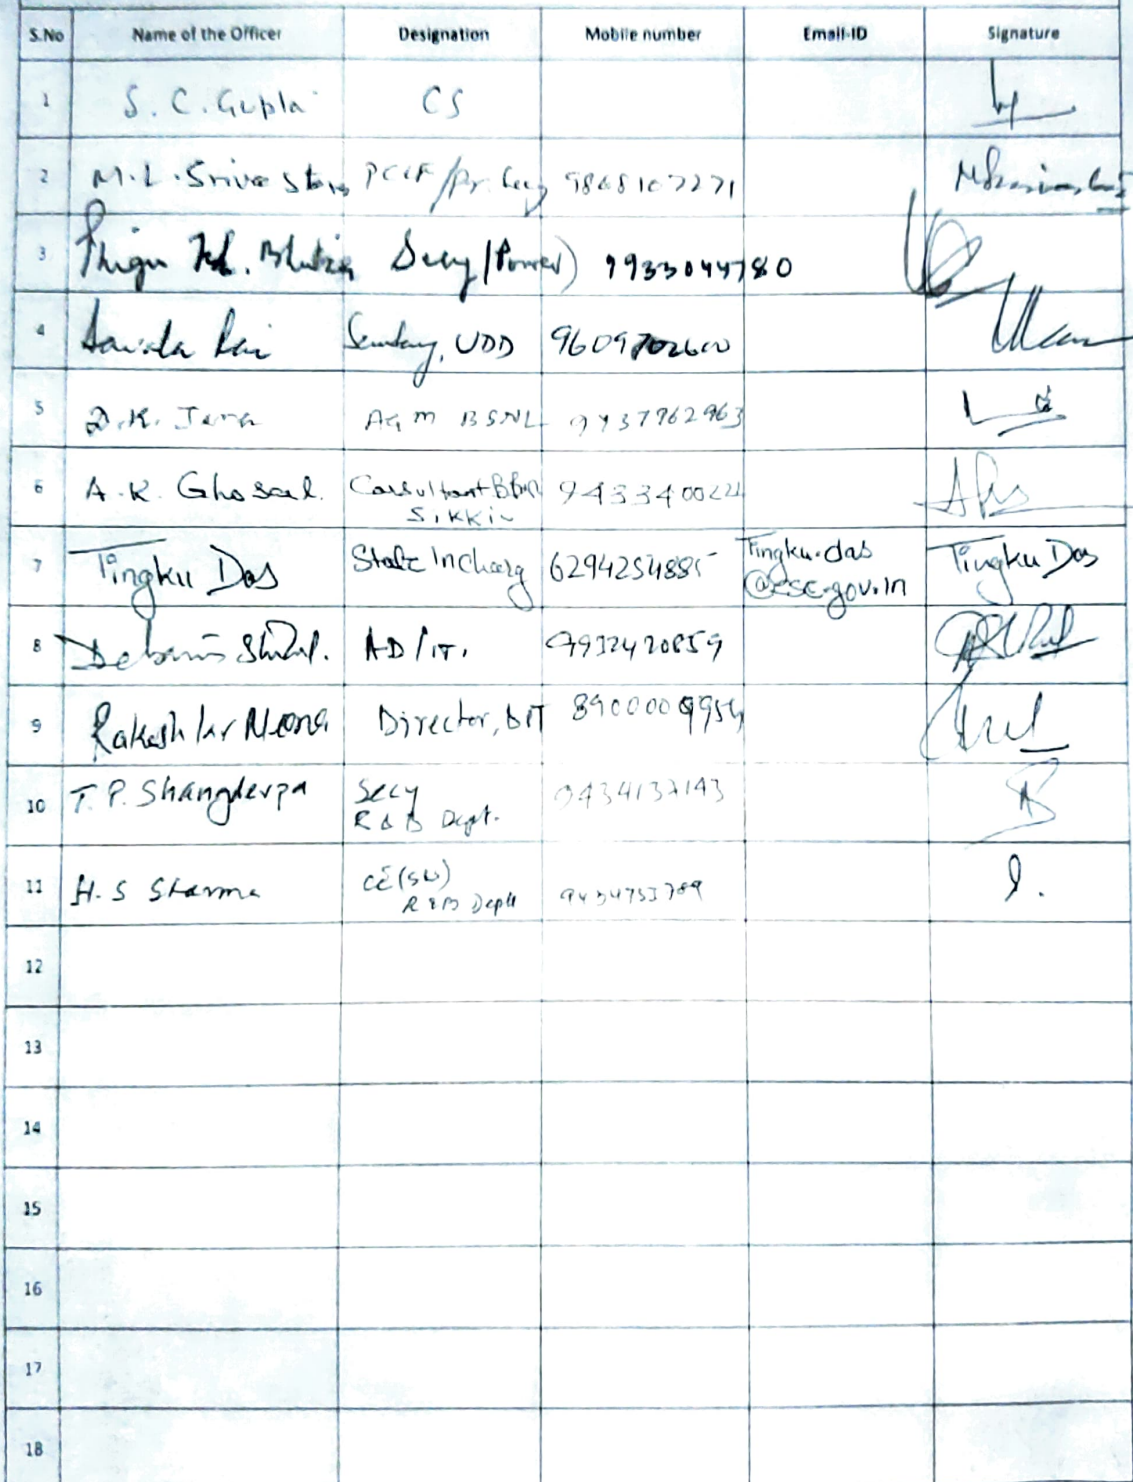 S.No Name of the Officer Designation Mobile number Email-ID Signature
1 S. C. Gupta CS
2 M.L. Srivastava PCCF/Pr. Secy 9868107271
3 Bhutia Secy (Power) 9933044780
4 Rai Secretary, UDD
5 D.K. Jena AGM BSNL 9437962963
6 A.K. Ghosal. Consultant BBNL
Sikkim
7 Tingku Das State Incharg 6294254885 Tingku.das Tingku Das
@csc.gov.in
8 AD/IT. 9932420859
9 Rakesh kr Meena Director, DIT
10 T. P. Shangderpa Secy 9434137143
R & B Dept.
11 H. S Sharma CE(SW)
R & B Deptt 9434753789
12
13
14
15
16
17
18